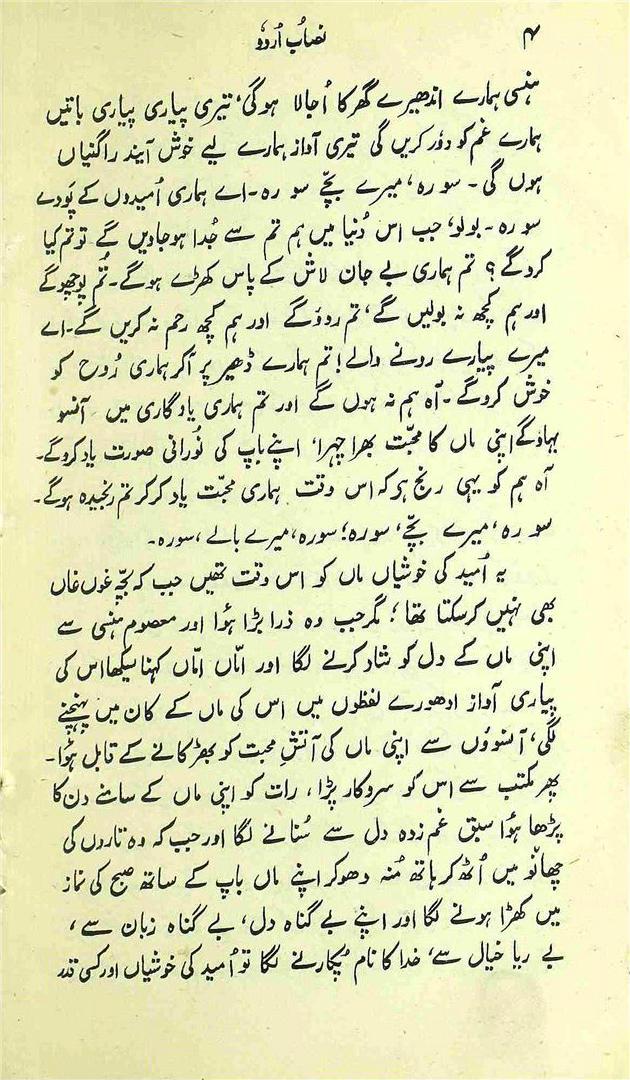 ۴ نصاب اُردو
ہنسی ہمارے اندھیرے گھر کا اُجالا ہوگی، تیری پیاری پیاری باتیں
ہمارے غم کو دُور کریں گی تیری آواز ہمارے لیے خوش آیند راگنیاں
ہوں گی۔ سو رہ، میرے بچّے سو رہ۔ اے ہماری اُمیدوں کے پَودے
سو رہ۔ بولو، جب اس دُنیا میں ہم تم سے جُدا ہوجاویں گے تو تم کیا
کروگے؟ تم ہماری بے جان لاش کے پاس کھڑے ہوگے۔ تُم پوچھوگے
اور ہم کچھ نہ بولیں گے، تم روؤگے اور ہم کچھ رحم نہ کریں گے۔ اے
میرے پیارے رونے والے! تم ہمارے ڈھیر پر آکر ہماری رُوح کو
خوش کروگے۔ آہ ہم نہ ہوں گے اور تم ہماری یادگاری میں آنسو
بہاؤگے اپنی ماں کا محبّت بھرا چہرا، اپنے باپ کی نُورانی صورت یاد کروگے۔
آہ ہم کو یہی رنج ہی کہ اس وقت ہماری محبّت یاد کرکر تم رنجیدہ ہوگے۔
سو رہ، میرے بچّے، سو رہ؛ سو رہ، میرے بالے، سو رہ۔
یہ اُمید کی خوشیاں ماں کو اس وقت تھیں جب کہ بچّہ غوں غاں
بھی نہیں کرسکتا تھا؛ مگر جب وہ ذرا بڑا ہُوا اور معصوم ہنسی سے
اپنی ماں کے دل کو شاد کرنے لگا اور امّاں امّاں کہنا سیکھا اس کی
پیاری آواز ادھورے لفظوں میں اس کی ماں کے کان میں پہنچنے
لگی، آنسوؤں سے اپنی ماں کی آتشِ محبت کو بھڑکانے کے قابل ہُوا۔
پھر مکتب سے اس کو سروکار پڑا، رات کو اپنی ماں کے سامنے دن کا
پڑھا ہُوا سبق غم زدہ دل سے سُنانے لگا اور جب کہ وہ تاروں کی
چھانْو میں اُٹھ کر ہاتھ مُنہ دھوکر اپنے ماں باپ کے ساتھ صبح کی نماز
میں کھڑا ہونے لگا اور اپنے بے گناہ دل، بے گناہ زبان سے،
بے ریا خیال سے، خدا کا نام پُکارنے لگا تو اُمید کی خوشیاں اور کسی قدر